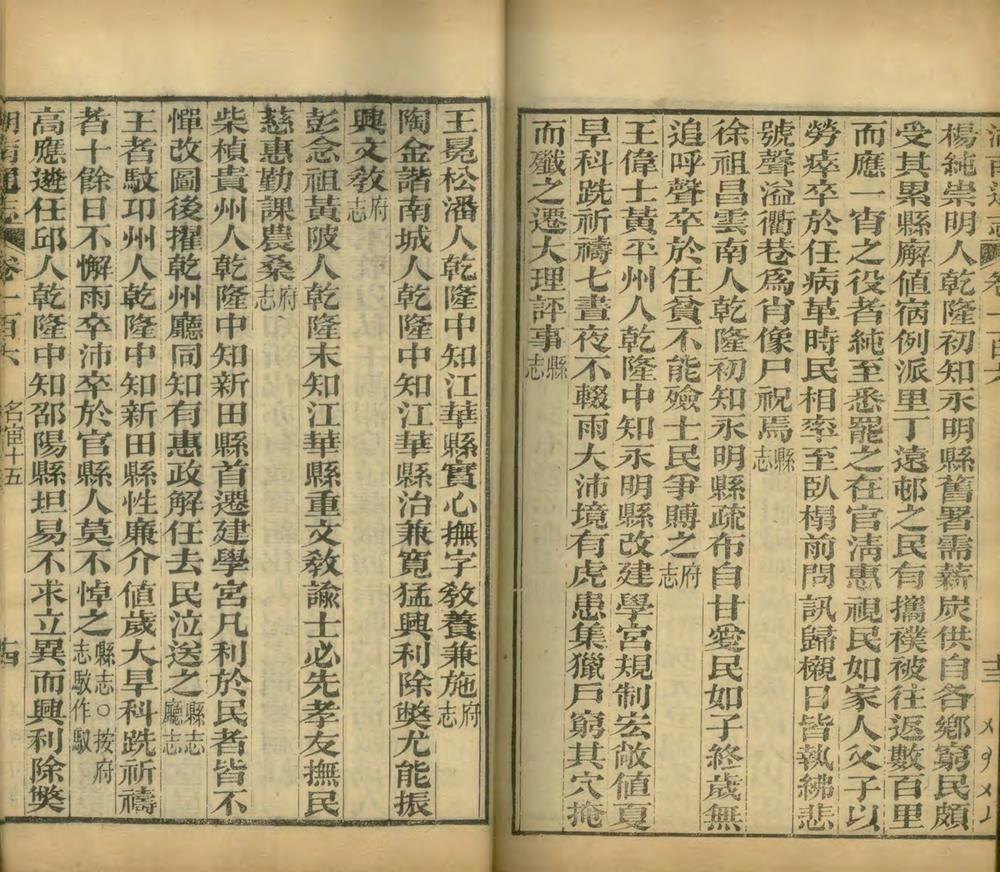 湖南通志 卷一百六 十三
楊純崇明人乾隆初知永明縣舊署需薪炭供自各鄉窮民頗
受其累縣廨値宿例派里丁遠邨之民有攜襆被往返數百里
而應一宵之役者純至悉罷之在官淸惠視民如家人父子以
勞瘁卒於任病革時民相率至臥榻前問訊歸櫬日皆執紼悲
號聲溢衢巷爲肖像尸祝焉縣志
徐祖昌雲南人乾隆初知永明縣疏布自甘愛民如子終歲無
追呼聲卒於任貧不能殮士民爭賻之府志
王偉士黃平州人乾隆中知永明縣改建學宮規制宏敞値夏
旱科跣祈禱七晝夜不輟雨大沛境有虎患集獵戶窮其穴掩
而殲之遷大理評事縣志
王冕松潘人乾隆中知江華縣實心撫字敎養兼施府志
陶金諧南城人乾隆中知江華縣治兼寬猛興利除獘尤能振
興文敎府志
彭念祖黃陂人乾隆末知江華縣重文敎諭士必先孝友撫民
慈惠勤課農桑府志
柴楨貴州人乾隆中知新田縣首遷建學宮凡利於民者皆不
憚改圖後擢乾州廳同知有惠政解任去民泣送之縣志廳志
王者馭邛州人乾隆中知新田縣性廉介値歲大旱科跣祈禱
者十餘日不懈雨卒沛卒於官縣人莫不悼之縣志○按府志馭作馭
高應遴任邱人乾隆中知邵陽縣坦易不求立異而興利除獘
湖南通志 卷一百六 名宦十五 十四